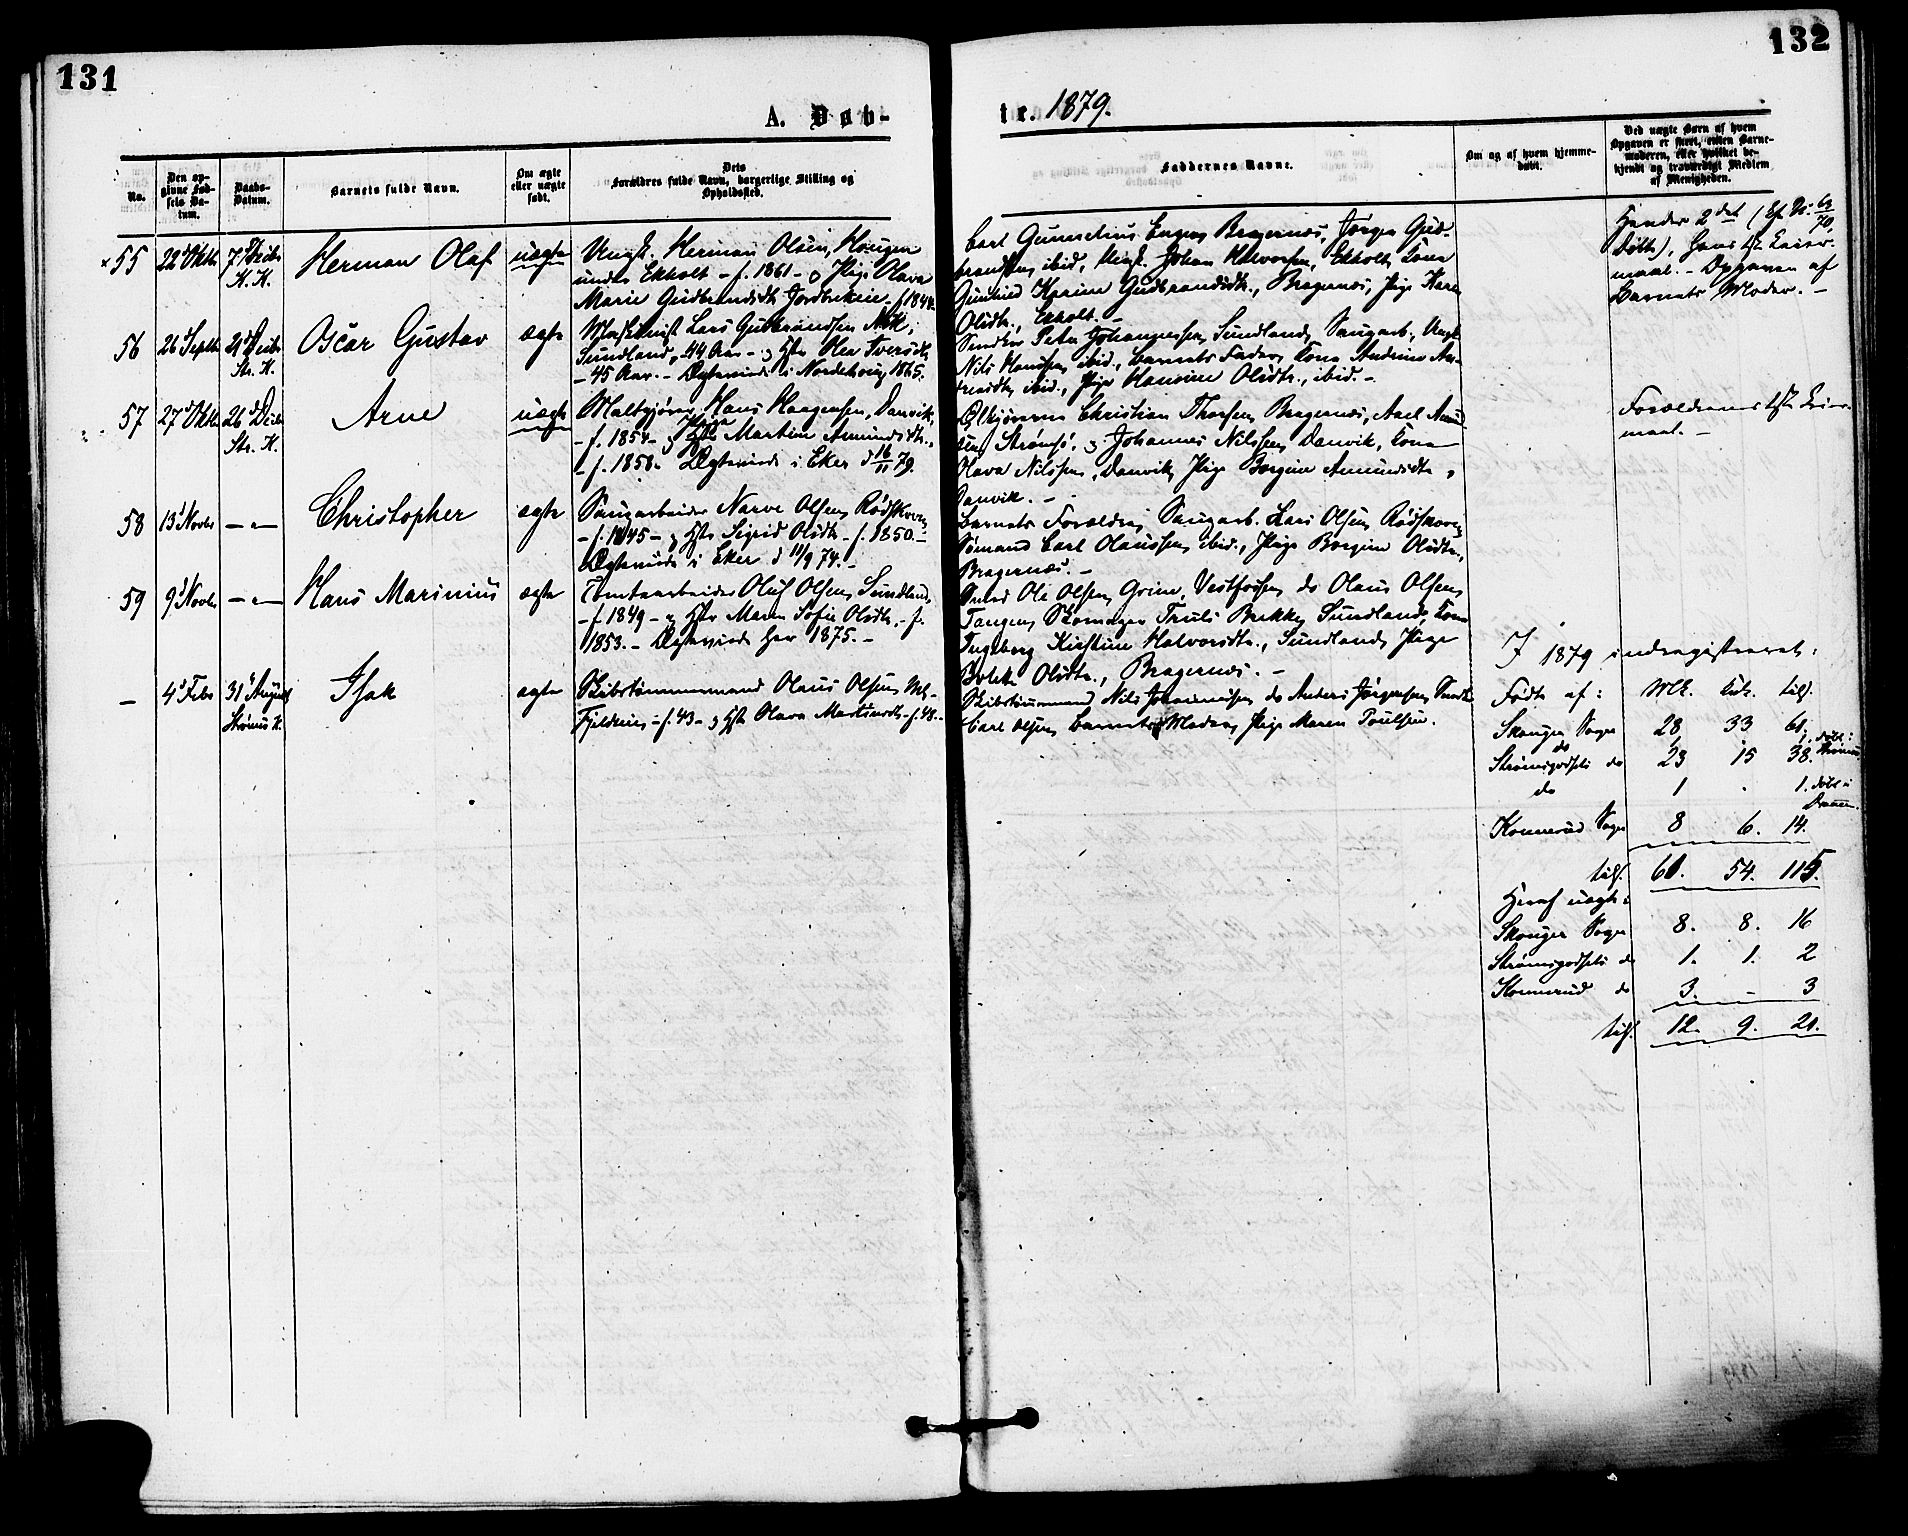 131
132
A. Døb-
te. 1879.
No.
Den opgivne Fødsels Datum.
Daabs-Datum.
Barnets fulde Navn.
Om ægte eller uægte født.
Dets Forældres fulde Navn, borgerlige Stilling og Opholdssted.
Faddernes Navne.
Om og af hvem hjemmedøbt.
Ved uægte Børn af hvem Opgaven er skeet, enten Barnemoderen, eller hvilket bekjendt og troværdigt Medlem af Menigheden.
×55 22d Oktbr 7d Decbr K. K. Herman Olaf uægte
Ungk. Herman Olsen, Haugen
under Ekholt – f. 1861 – og Pige Olava
Marie Gudbrandsdtr
Carl Gunnelius Engen, Bragernæs, Jørgen Gud-
brandsen, ibid, Ungk. Johan Halvorsen, Ekholt, Kone
Karine Gudbrandsdtr., Bragernæs, Pige Karen
Olsdtr., Ekholt. –
Opgaven af
Barnets Moder. –
56 26 Septbr 21d Decbr Str. K. Oscar Gustav ægte
Maskinist Lars Gudbrandsen
Sundland, 44 Aar – og Hst. Olea Iversdtr
– 45 Aar. – Ægteviede i Norderhoug 1865.
Peter Johannessen, Sundland, Saugarb.
Nils Hansen, ibid., Barnets Fader, Kone Andrine
ibid., Pige Hansine Olsdtr., ibid. –
57 27d Oktbr 26d Decbr Str. K. Arne uægte
Maltkjører Hans Haagensen, Danvik,
– f. 1854 – og Pige Martine Amundsdtr.,
– f. 1858. Ægteviede i Eker d 16/11 79.
Ølkjørerne Christian Thorsen, Bragernæs, Axel
Strømsø, og Johannes Nilssen, Danvik, Kone
Olava Nilssen, Danvik, Pige Borgine Amundsdtr,
Danvik. –
Forældrenes 1ste Leier-
maal. –
58 13d Novbr – " – Christopher ægte
Saugarbeider Narve Olsen, Rødskoven,
– f. 1845 – og Hst. Sigrid Olsdtr – f. 1850. –
Ægteviede i Eker d 11/9 74. –
Barnets Forældre, Saugarb. Lars Olsen, Rødskoven,
Sømand Carl Olaussen, ibid., Pige Borgine Olsdtr.,
Bragernæs. –
59 9d Novbr – " – Hans Marinius ægte
Tomtearbeider Oluf Olsen, Sundland,
– f. 1849 – og Hst. Maren Sofie Olsdtr. – f.
1853. – Ægteviede her 1875. –
Smed Ole Olsen Grine, Vestfossen, do Olaus Olsen,
Tangen, Skomager Truls Brekke, Sundland, Kone
Ingeborg Kirstine Halvorsdtr., Sundland, Pige
Olsdtr., Bragernæs. –
– 4d Febr 31d August Strøms K. Isak ægte
Skibstømmermand Olaus Olsen,
Fjeldene – f. 43 – og Hst. Olava Martinsdtr – f. 48. –
Skibstømmermand Nils Johannesen, do Anders Jørgensen,
Carl Olsen, Barnets Moder, Pige Maren Poulsen.
I 1879 indregistreret:
Fødte af: Mk. Kvk. tils.
Skouger Sogn 28 33 61.
Strømsgodsets do 23 15 38. døbt i Strømsø
do 1 . 1. døbt i
Konnerud Sogn 8 6. 14.
tils. 60. 54. 115.
Heraf uægte:
Skouger Sogn 8. 8. 16
Strømsgodsets do 1. 1. 2
Konnerud do 3. – 3
tils. 12. 9. 21.